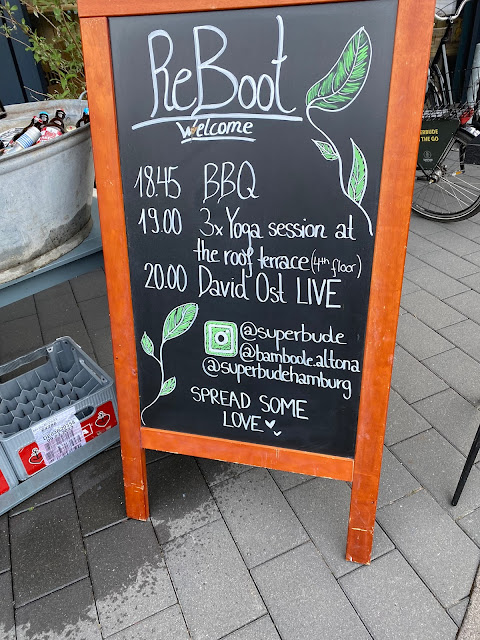 ReBoot
welcome
18.45 BBQ
19.00 3x Yoga session at
the roof terrace (4th floor)
20.00 David Ost LIVE
@superbude
@bamboole.altona
@superbudehamburg
SPREAD SOME
LOVE
THE GO